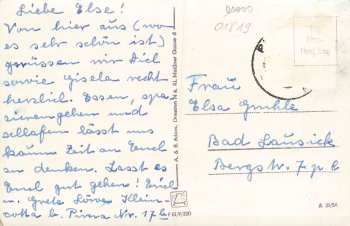 Liebe Else!
Von hier aus (wo
es sehr schön ist)
grüssen wir Dich
sowie Gisela recht
herzlich. Essen, spa-
zierengehen und
schlafen lässt uns
kaum Zeit an Euch
zu denken. Lasst es
Euch gut gehen! Erich
u. Grete Löwe Klein-
cotta b. Pirna Nr. 17b
A. & R. Adam, Dresden
D5000
01819
Frau
Elsa
Bad Lausick
Bergstr. 7 p b